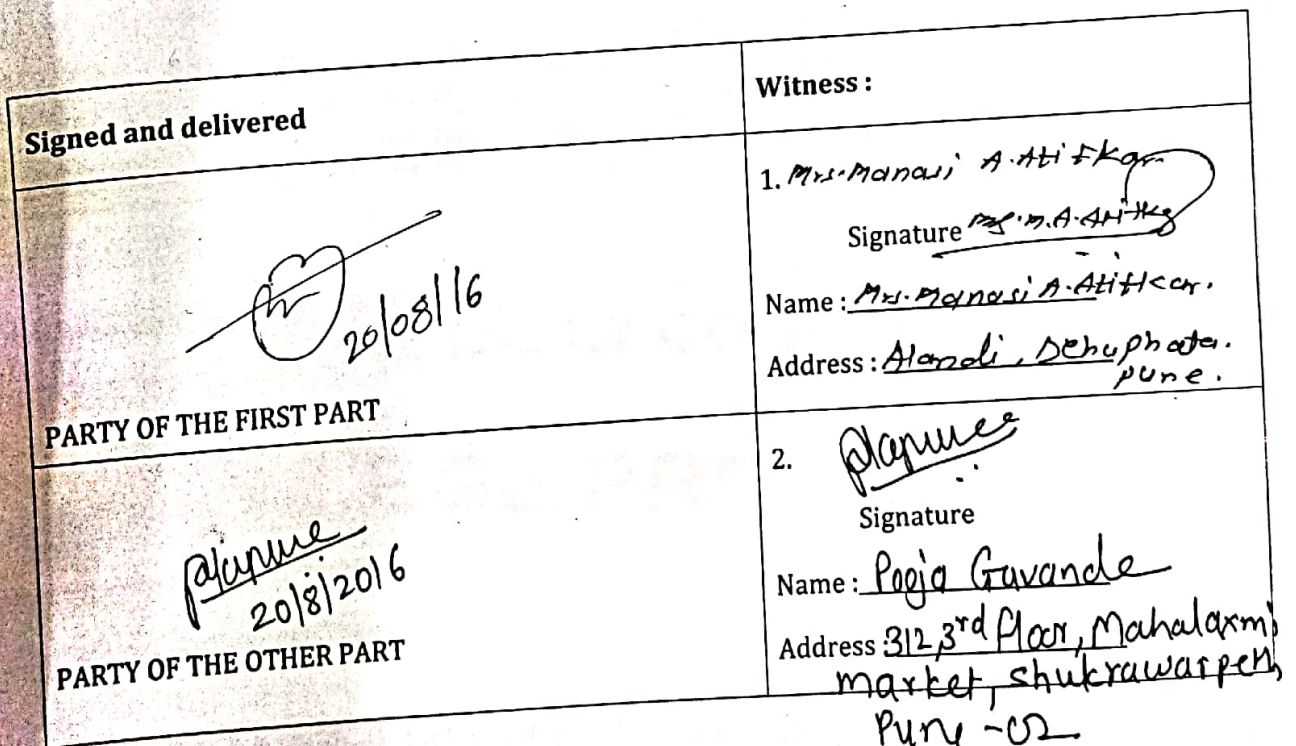 Signed and delivered
Witness :
20/08/16
PARTY OF THE FIRST PART
1. Mrs. Manasi A. Atitkar
Signature
Name : Mrs. Manasi A. Atitkar.
Address : Alandi, Dehuphata.
Pune.
20/8/2016
PARTY OF THE OTHER PART
2.
Signature
Name : Pooja Gavande
Address : 312, 3rd Floor, Mahalaxmi
market, shukrawarpeth,
Pune -02